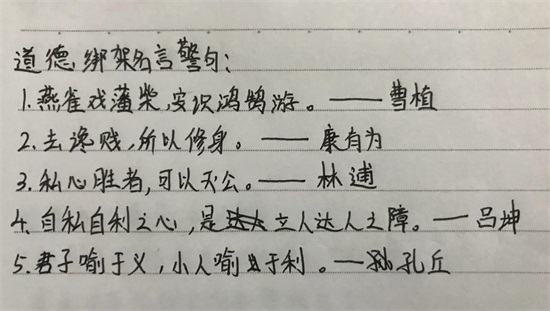 道德绑架名言警句：
1.燕雀戏藩柴，安识鸿鹄游。——曹植
2.去谗贱，所以修身。——康有为
3.私心胜者，可以灭公。——林逋
4.自私自利之心，是立人达人之障。—吕坤
5.君子喻于义，小人喻于利。—孔丘